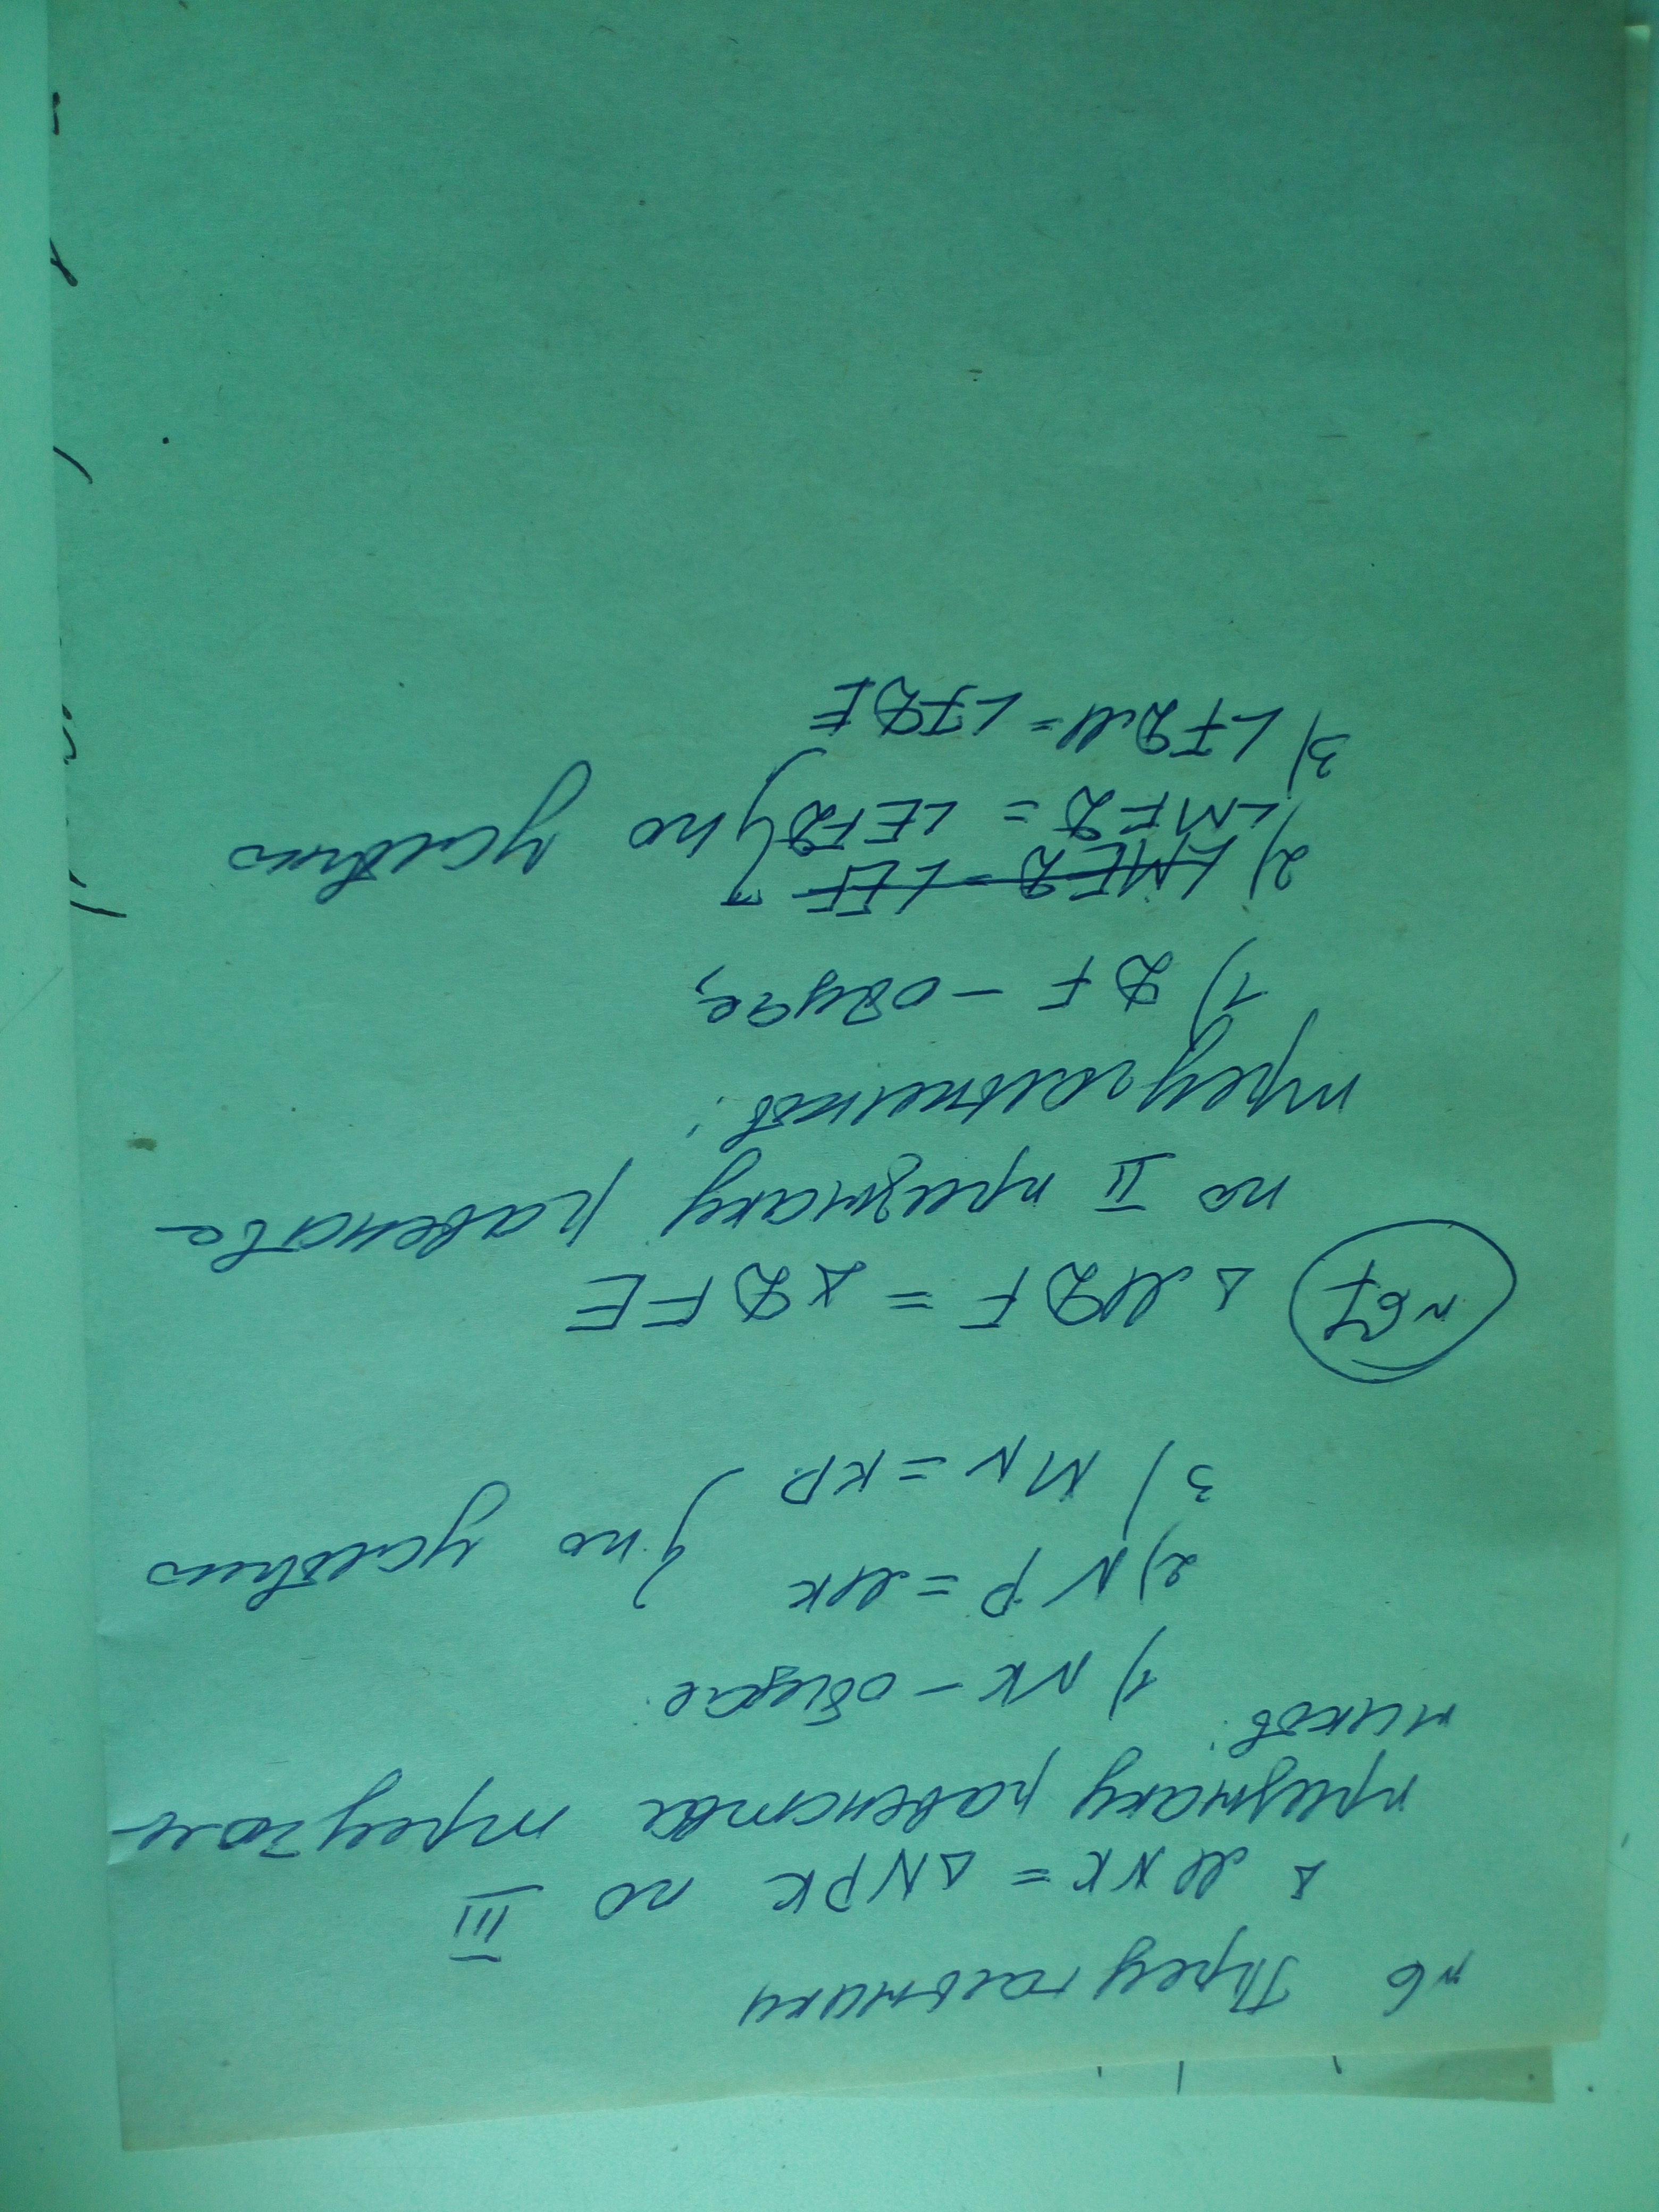 №6 Треугольники
△ MNK = △NPK по III
признаку равенства треуголь-
ников:
1) NK - общая.
2) NP = MK } по условию
3) MN = KP
№67 △ MDF = △ DFE
по II признаку равенства
треугольников:
1) DF - общая,
2) ∠MFD = ∠EFD } по условию
3) ∠FDM = ∠FDE